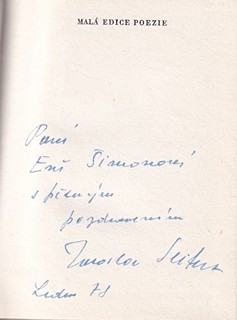 MALÁ EDICE POEZIE
Paní
Evě Šimonové
s pěkným
pozdravením
Jaroslav Seifert
Leden 78